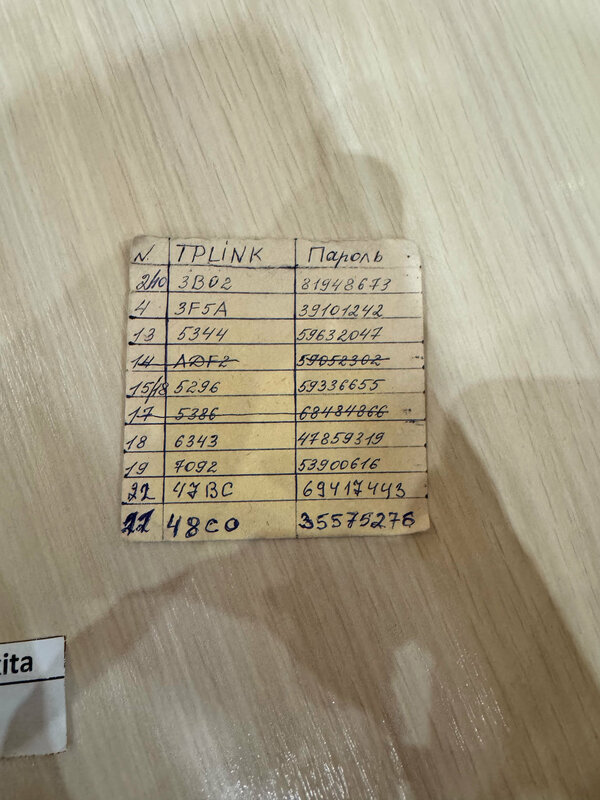 N. TPLINK Пароль
2/10 3B02 81948673
4 3F5A 39101242
13 5344 59632047
14 ADF2 59052302
15/18 5296 59336655
17 5386 68484866
18 6343 47859319
19 7092 53900616
22 47BC 69417443
21 48C0 35575276
ita